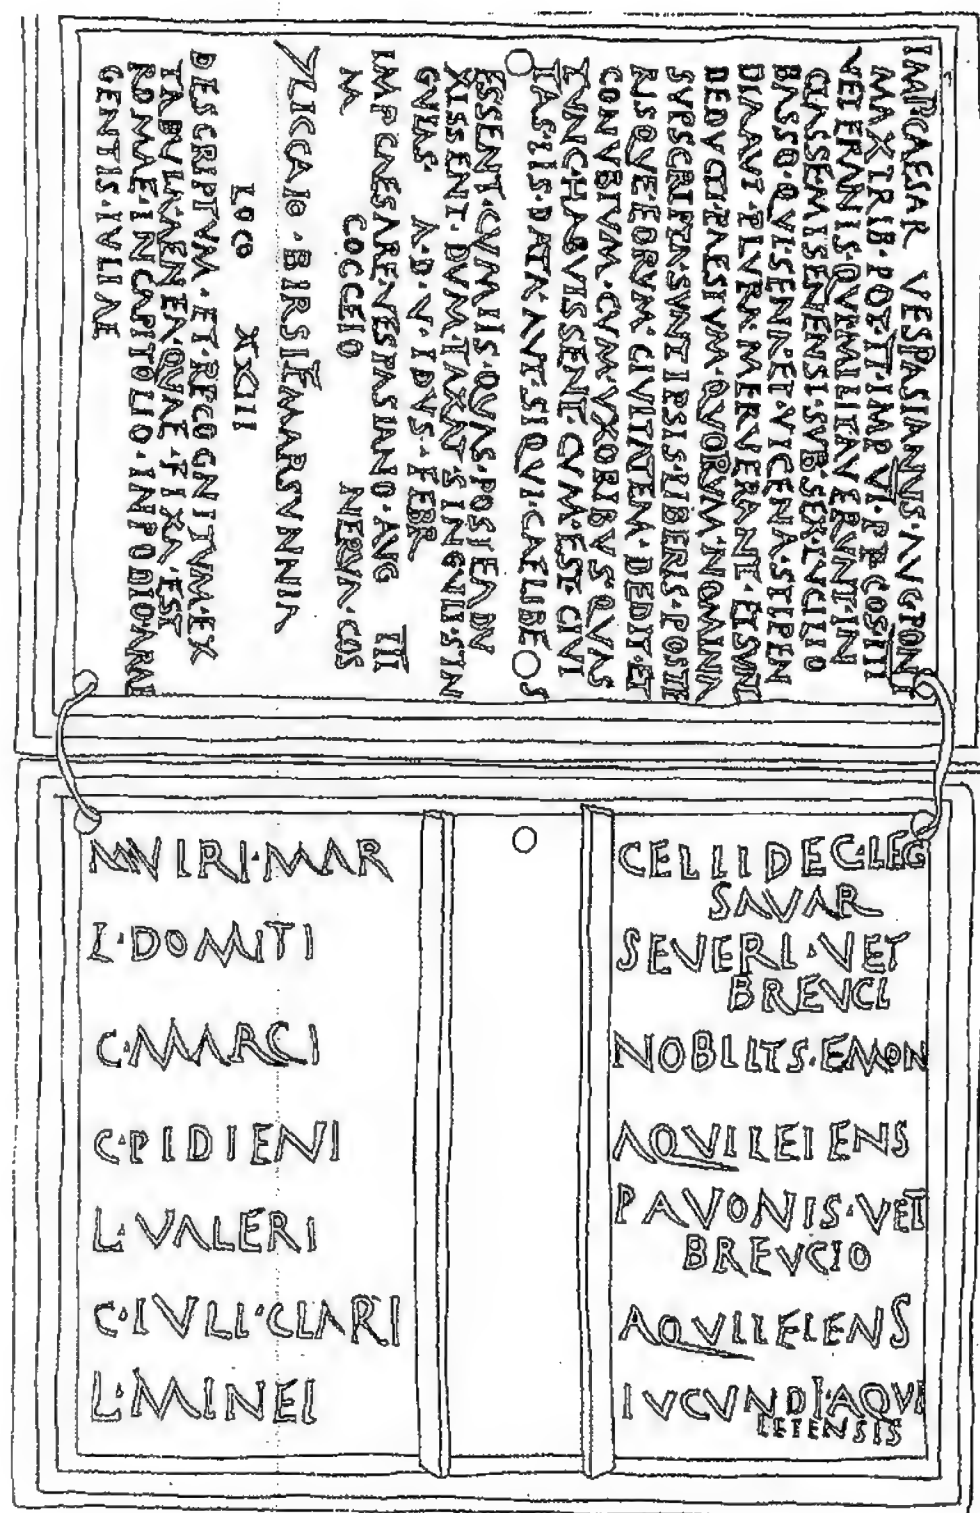 IMP CAESAR VESPASIANVS·AVG PONT
MAX TRIB·POT·ITI·IMP VI·P·P·COS·III
VETERANIS·QVI·MILITAVERVNT·IN
CLASSE·MISENENSI·SVB·SEX·LVCILIO
BASSO·QVI·SENN·ET·VICENA·STIPEN
DIA·AVT·PLVRA·MERVERANT·ET·SVNT
DEDVCTI·PAESTVM·QVORVM·NOMINA
SVPSCRIPTA·SVNT·IPSIS·LIBERIS·POSTE
RISQVE·EORVM·CIVITATEM·DEDIT·ET
CONVBIVM·CVM·VXORIBVS·QVAS
TVNC·HABVISSENT·CVM·EST·CIVI
TAS·IIS·DATA·AVT·SIQVI·CAELIBES
ESSENT·CVM·IIS·QVAS·POSTEA·DV
XISSENT·DVMTAXAT·SINGVLI·SIN
GVLAS· A·D·V·IDVS·FEBR
IMP CAESARE·VESPASIANO·AVG III
M COCCEIO NERVA·COS
PLICCAIO·BIRSI F MARSVNNIA
LOCO XXIII
DESCRIPTVM·ET·RECOGNITVM·EX
TABVLA·AENEA·QVAE·FIXA·EST
ROMAE·IN CAPITOLIO·IN PODIO ARAE
GENTIS·IVLIAE
VIRI·MAR
CELLI DEC·LEG
SAVAR
L·DOMITI
SEVERI·VET
BREVCI
C·MARCI
NOBILIS·EMON
C·PIDIENI
AQVILEIENS
L·VALERI
PAVONIS·VET
BREVCIO
C·IVLI·CLARI
AQVILEIENS
L·MINEI
IVCVNDI·AQVI
LEIENSIS